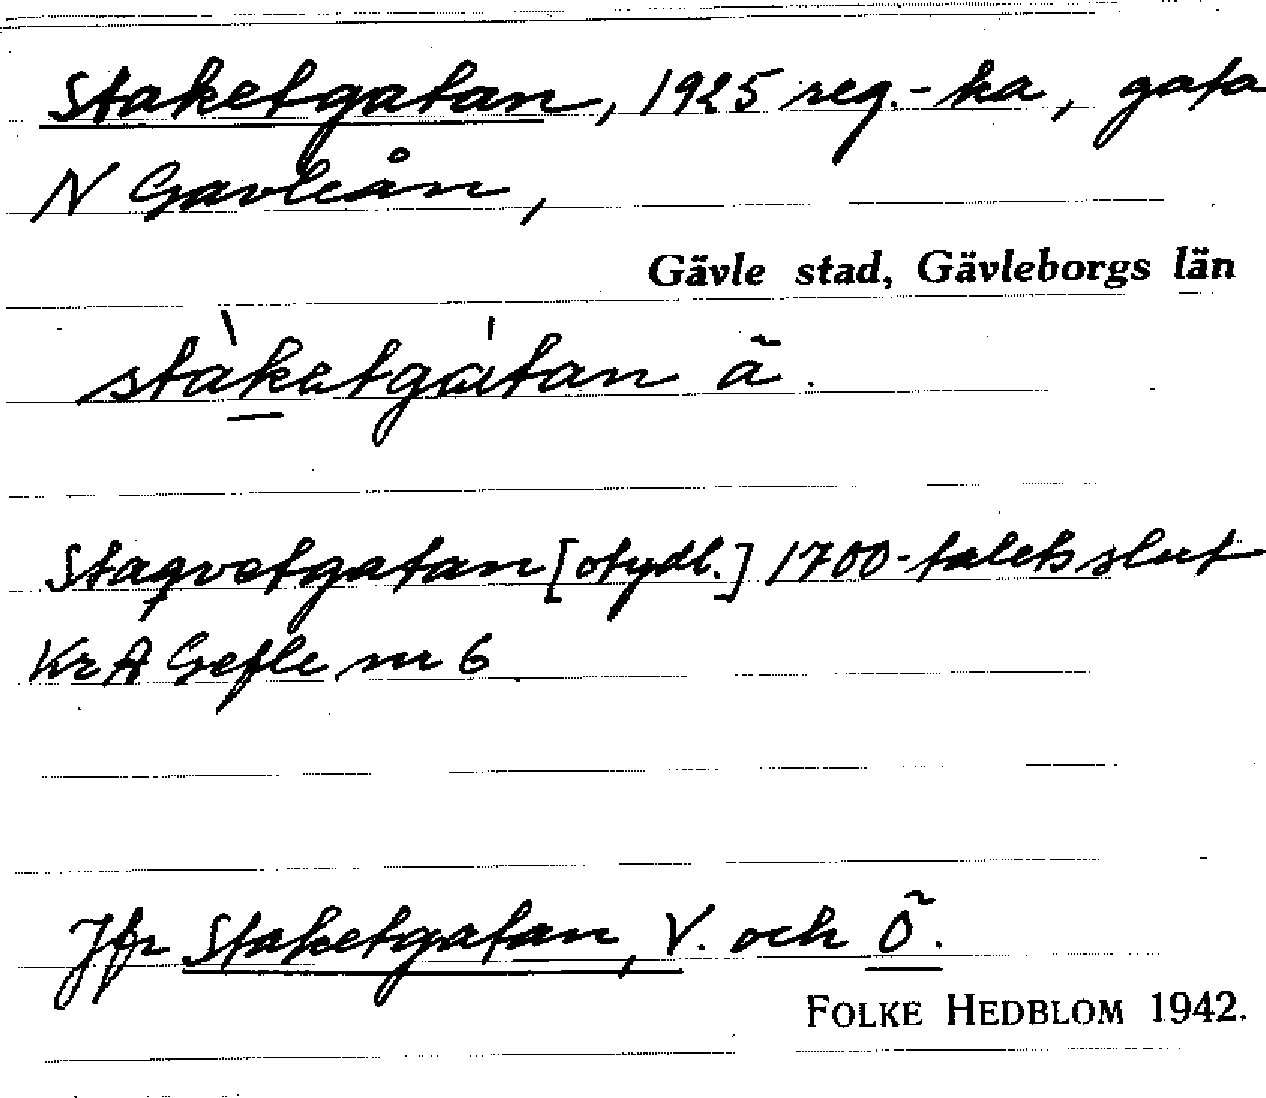 Staketgatan, 1925 reg.-ka, gata
N Gavleån,
Gävle stad, Gävleborgs län
stàketgátan ä.
Staqvetgatan [otydl.] 1700-talets slut
KrA Gefle nr 6
Jfr Staketgatan, V. och Ö.
FOLKE HEDBLOM 1942.